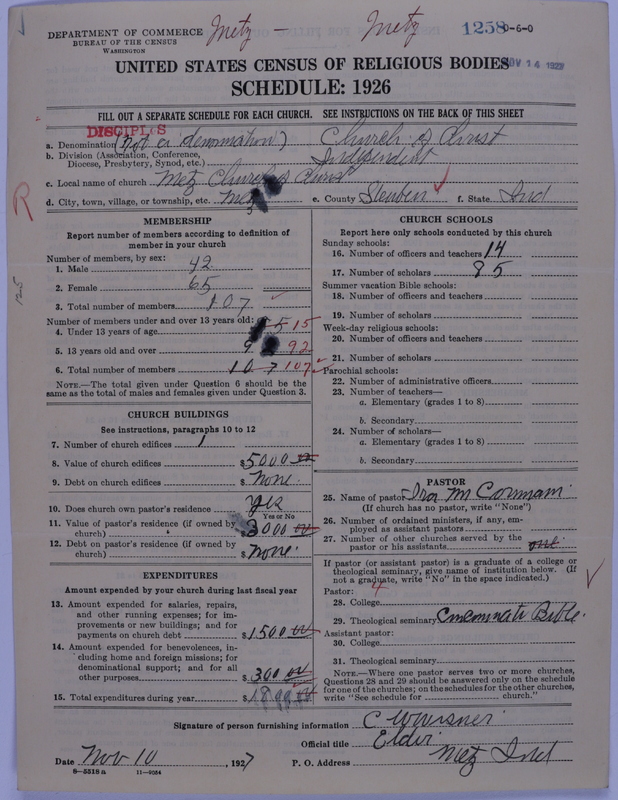 Metz — Metz
1258
D-6-0
NOV 14 1927
DEPARTMENT OF COMMERCE
BUREAU OF THE CENSUS
WASHINGTON
UNITED STATES CENSUS OF RELIGIOUS BODIES
SCHEDULE: 1926
FILL OUT A SEPARATE SCHEDULE FOR EACH CHURCH. SEE INSTRUCTIONS ON THE BACK OF THIS SHEET
DISCIPLES
a. Denomination (not a denomination) Church of Christ
b. Division (Association, Conference, Diocese, Presbytery, Synod, etc.) Independent
c. Local name of church Metz Church of Christ
d. City, town, village, or township, etc. Metz e. County Steuben f. State Ind
R
125
MEMBERSHIP
Report number of members according to definition of
member in your church
Number of members, by sex:
1. Male 42
2. Female 65
3. Total number of members 107
Number of members under and over 13 years old:
4. Under 13 years of age 15 15
5. 13 years old and over 92 92
6. Total number of members 107 107
NOTE.—The total given under Question 6 should be the
same as the total of males and females given under Question 3.
CHURCH BUILDINGS
See instructions, paragraphs 10 to 12
7. Number of church edifices 1
8. Value of church edifices $5000 00
9. Debt on church edifices $ None.
10. Does church own pastor's residence Yes
Yes or No
11. Value of pastor's residence (if owned by
church) $3000 00
12. Debt on pastor's residence (if owned by
church) $ None.
EXPENDITURES
Amount expended by your church during last fiscal year
13. Amount expended for salaries, repairs,
and other running expenses; for im-
provements or new buildings; and for
payments on church debt $1500 00
14. Amount expended for benevolences, in-
cluding home and foreign missions; for
denominational support; and for all
other purposes $300 00
15. Total expenditures during year $1800 00
CHURCH SCHOOLS
Report here only schools conducted by this church
Sunday schools:
16. Number of officers and teachers 14
17. Number of scholars 85
Summer vacation Bible schools:
18. Number of officers and teachers
19. Number of scholars
Week-day religious schools:
20. Number of officers and teachers
21. Number of scholars
Parochial schools:
22. Number of administrative officers
23. Number of teachers—
a. Elementary (grades 1 to 8)
b. Secondary
24. Number of scholars—
a. Elementary (grades 1 to 8)
b. Secondary
PASTOR
25. Name of pastor Ira
(If church has no pastor, write "None")
26. Number of ordained ministers, if any, em-
ployed as assistant pastors
27. Number of other churches served by the
pastor or his assistants one
If pastor (or assistant pastor) is a graduate of a college or
theological seminary, give name of institution below. (If
not a graduate, write "No" in the space indicated.)
Pastor: 4
28. College
29. Theological seminary Cincinnati Bible.
Assistant pastor:
30. College
31. Theological seminary
NOTE.—Where one pastor serves two or more churches,
Questions 28 and 29 should be answered only on the schedule
for one of the churches; on the schedules for the other churches,
write "See schedule for church."
Signature of person furnishing information
Official title Elder
Date Nov 10, 1927 P. O. Address Metz Ind
8—5518 a 11—9054